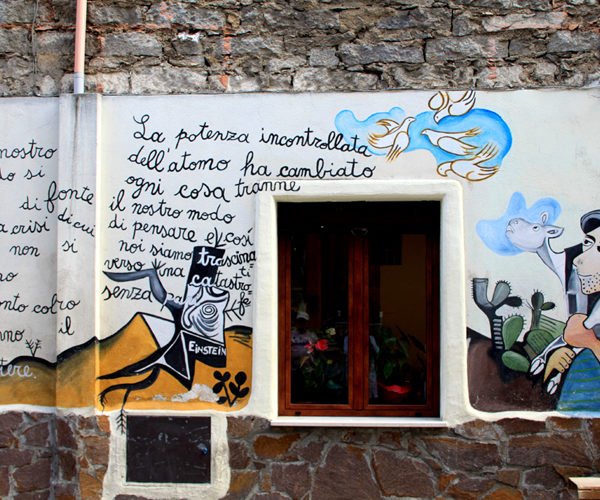 nostro
o si
di fonte
a crisi di cui
non si
no
onto coloro
nno il
tere.
La potenza incontrollata
dell'atomo ha cambiato
ogni cosa tranne
il nostro modo
di pensare e così
noi siamo trascinati
verso una catastrofe
senza
EINSTEIN